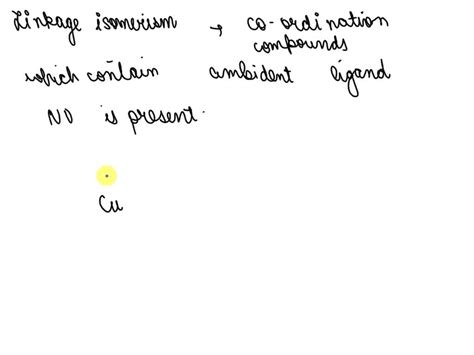 Linkage isomerism → co-ordination
compounds
which contain ambident ligand
NO is present.
Cu